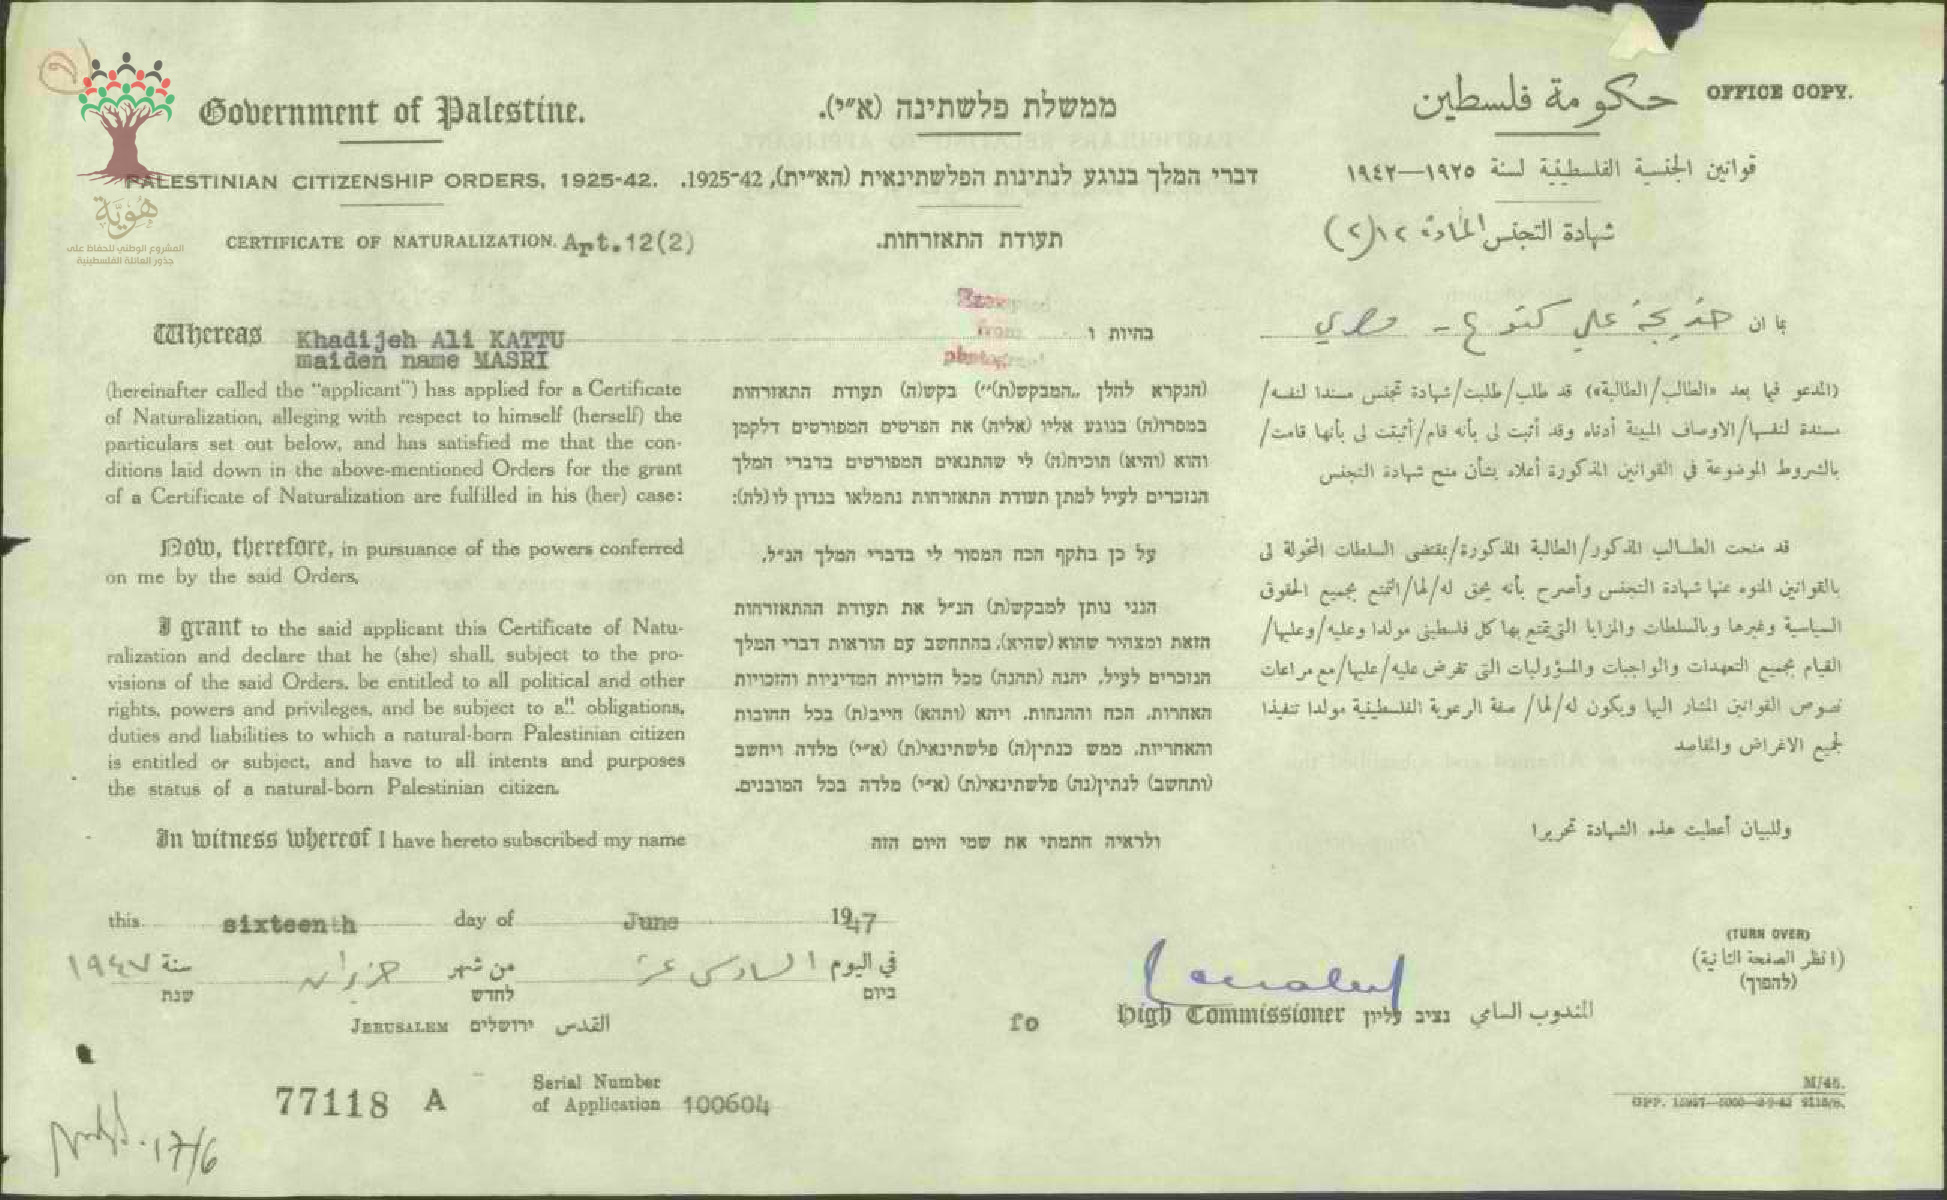 OFFICE COPY.
Government of Palestine.
ממשלת פלשתינה (א״י).
حكومة فلسطين
PALESTINIAN CITIZENSHIP ORDERS, 1925-42.
דברי המלך בנוגע לנתינות הפלשתינאית (הא״ית), 1925-42.
قوانين الجنسية الفلسطينية لسنة ١٩٢٥—١٩٤٢
CERTIFICATE OF NATURALIZATION. Art.12(2)
תעודת התאזרחות.
شهادة التجنس المادة ١٢(٢)
هُوِيَّة
المشروع الوطني للحفاظ على
جذور العائلة الفلسطينية
Whereas Khadijeh Ali KATTU
maiden name MASRI
(hereinafter called the "applicant") has applied for a Certificate
of Naturalization, alleging with respect to himself (herself) the
particulars set out below, and has satisfied me that the con-
ditions laid down in the above-mentioned Orders for the grant
of a Certificate of Naturalization are fulfilled in his (her) case:
Now, therefore, in pursuance of the powers conferred
on me by the said Orders,
I grant to the said applicant this Certificate of Natu-
ralization and declare that he (she) shall, subject to the pro-
visions of the said Orders, be entitled to all political and other
rights, powers and privileges, and be subject to all obligations,
duties and liabilities to which a natural-born Palestinian citizen
is entitled or subject, and have to all intents and purposes
the status of a natural-born Palestinian citizen.
In witness whereof I have hereto subscribed my name
from
בהיות ו
(הנקרא להלן ,,המבקש(ת)״) בקש(ה) תעודת התאזרחות
במסרו(ה) בנוגע אליו (אליה) את הפרטים המפורטים דלקמן
והוא (והיא) הוכיח(ה) לי שהתנאים המפורטים בדברי המלך
הנזכרים לעיל למתן תעודת התאזרחות נתמלאו בנדון לו (לה):
על כן בתקף הכח המסור לי בדברי המלך הנ״ל,
הנני נותן למבקש(ת) הנ״ל את תעודת ההתאזרחות
הזאת ומצהיר שהוא (שהיא), בהתחשב עם הוראות דברי המלך
הנזכרים לעיל, יהנה (תהנה) מכל הזכויות המדיניות והזכויות
האחרות, הכח וההנחות, ויהא (ותהא) חייב(ת) בכל החובות
והאחריות, ממש כנתין(ה) פלשתינאי(ת) (א״י) מלדה ויחשב
(ותחשב) לנתין(נה) פלשתינאי(ת) (א״י) מלדה בכל המובנים.
ולראיה חתמתי את שמי היום הזה
بما ان خديجة علي كتوع - مصري
(المدعو فيما بعد «الطالب/الطالبة») قد طلب/طلبت/شهادة تجنس مسندا لنفسه/
مسندة لنفسها/الاوصاف المبينة أدناه وقد أثبت لى بأنه قام/أثبتت لى بأنها قامت/
بالشروط الموضوعة في القوانين المذكورة أعلاه بشأن منح شهادة التجنس
قد منحت الطالب المذكور/الطالبة المذكورة/بمقتضى السلطات المخولة لى
بالقوانين المنوه عنها شهادة التجنس وأصرح بأنه يحق له/لها/التمتع بجميع الحقوق
السياسية وغيرها وبالسلطات والمزايا التى يتمتع بها كل فلسطينى مولدا وعليه/وعليها/
القيام بجميع التعهدات والواجبات والمسؤوليات التى تفرض عليه/عليها/مع مراعات
نصوص القوانين المشار اليها ويكون له/لها/ صفة الرعوية الفلسطينية مولدا تنفيذا
لجميع الاغراض والمقاصد
وللبيان أعطيت هذه الشهادة تحريرا
this sixteenth day of June 1947
في اليوم السادس عشر من شهر حزيران سنة ١٩٤٧
ביום לחדש שנת
JERUSALEM ירושלים القدس
fo High Commissioner נציב עליון المندوب السامي
(TURN OVER)
(انظر الصفحة الثانية)
(להפוך)
77118 A
Serial Number
of Application 100604
M/46.
17/6